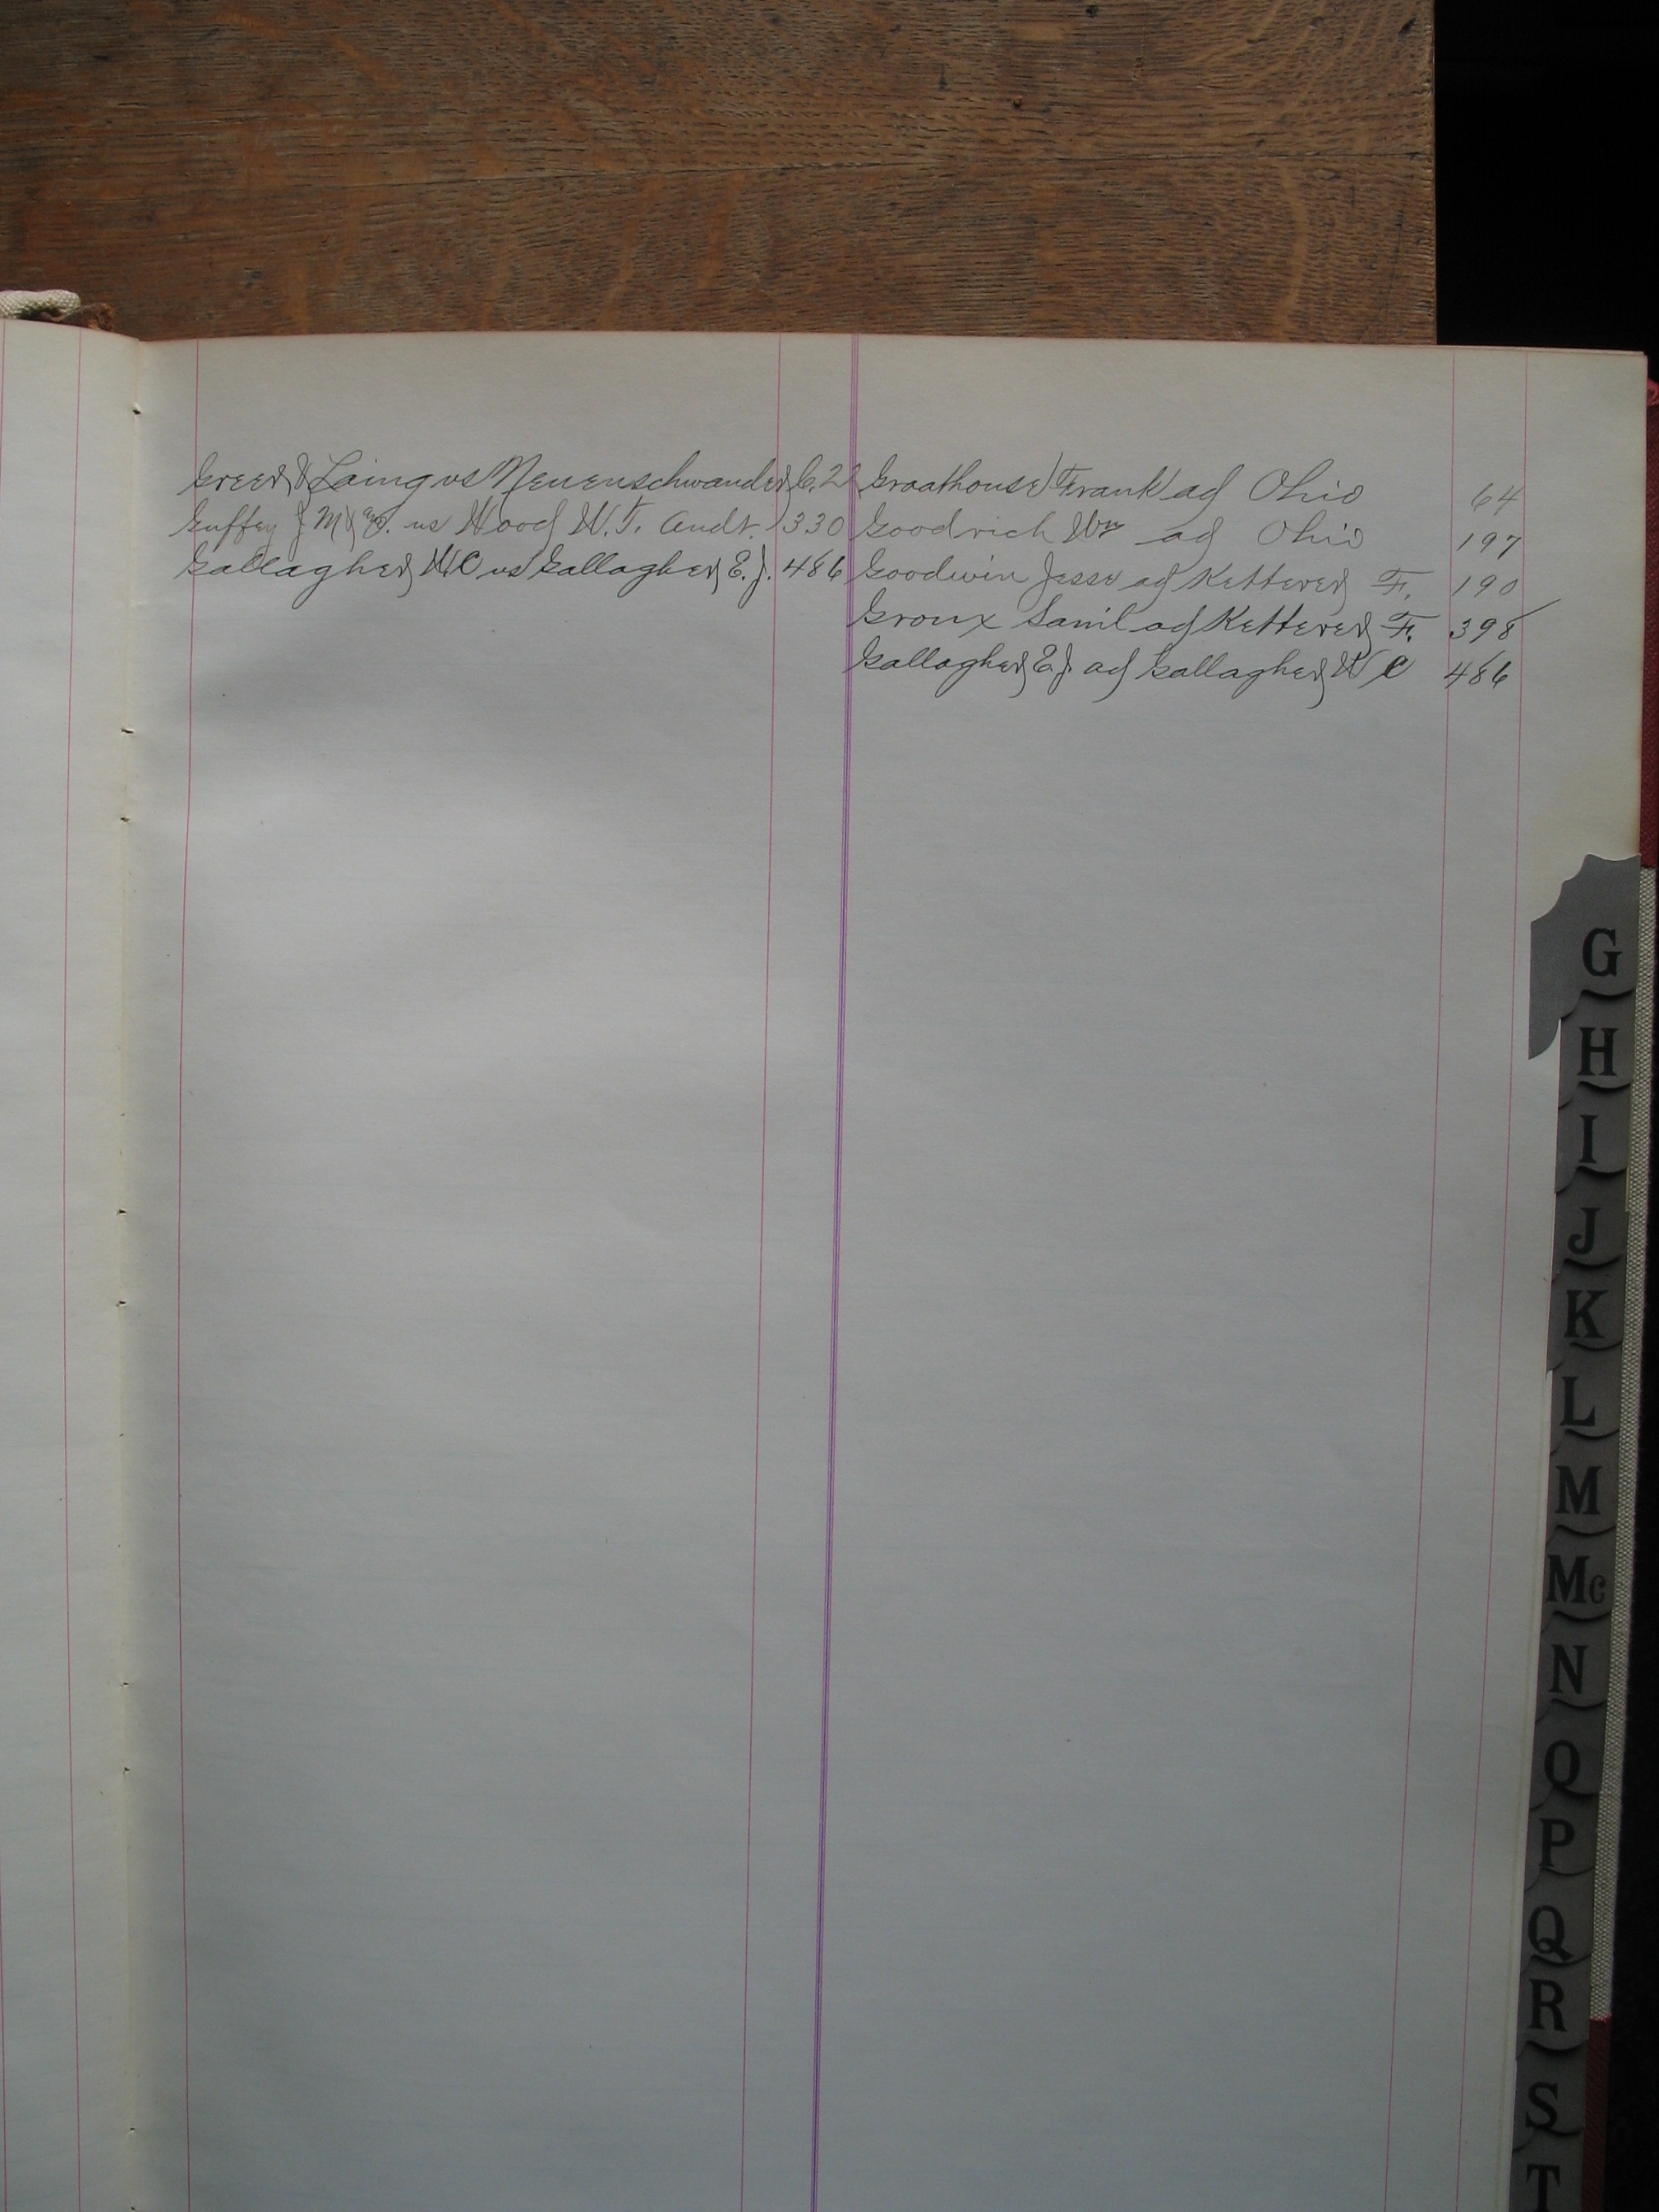 Greer & Laing vs Neuenschwander C. 2
Guffey J M & vs Wood W. T. Audt. 330
Gallagher W C vs Gallagher E. J. 486
Graathouse Frank ad Ohio 64
Goodrich Wm ad Ohio 197
Goodwin Jesse ad Ketterer F. 190
Groux Saml ad Ketterer F. 398
Gallagher E. J. ad Gallagher W C 486
G
H
I
J
K
L
M
Mc
N
O
P
Q
R
S
T